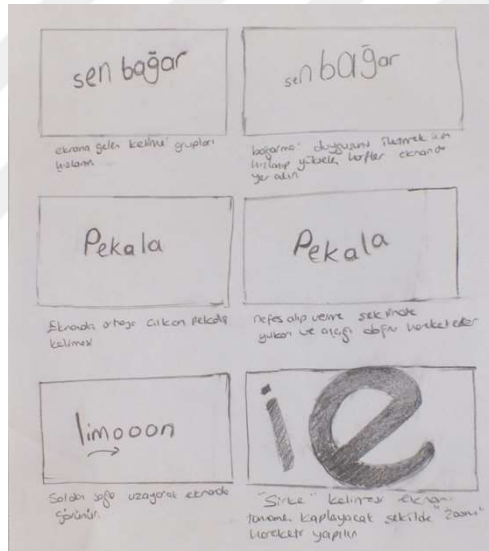 sen bağar
sen bağar
ekrana gelen kelime grupları
hızlanır.
bağarma duygusunu iletmek için
hızlanıp yükselen harfler ekranda
yer alır.
Pekala
Pekala
Ekranda ortaya çıkan Pekala
kelimesi
nefes alıp verme şeklinde
yukarı ve aşağı doğru hareket eder
limooon
ie
Soldan sağa uzayarak ekranda
görünür.
"Sirke" kelimesi ekranı
tamamen kaplayacak şekilde "Zoom"
hareketi yapılır